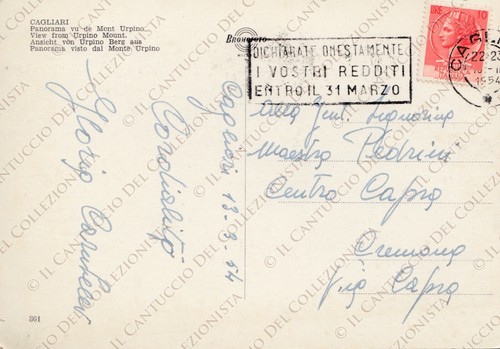 CAGLIARI
Panorama vu de Mont Urpino.
View from Urpino Mount.
Ansicht von Urpino Berg aus
Panorama visto dal Monte Urpino
Bromofoto
DICHIARATE ONESTAMENTE
I VOSTRI REDDITI
ENTRO IL 31 MARZO
10
CAGLI
22-23
1954
Cagliari 13-3-54
Cordialità
Alla Gent. Signorina
Maestra Pedrini
Centro Capra
Cremona
Via Capra
361
© IL CANTUCCIO DEL COLLEZIONISTA